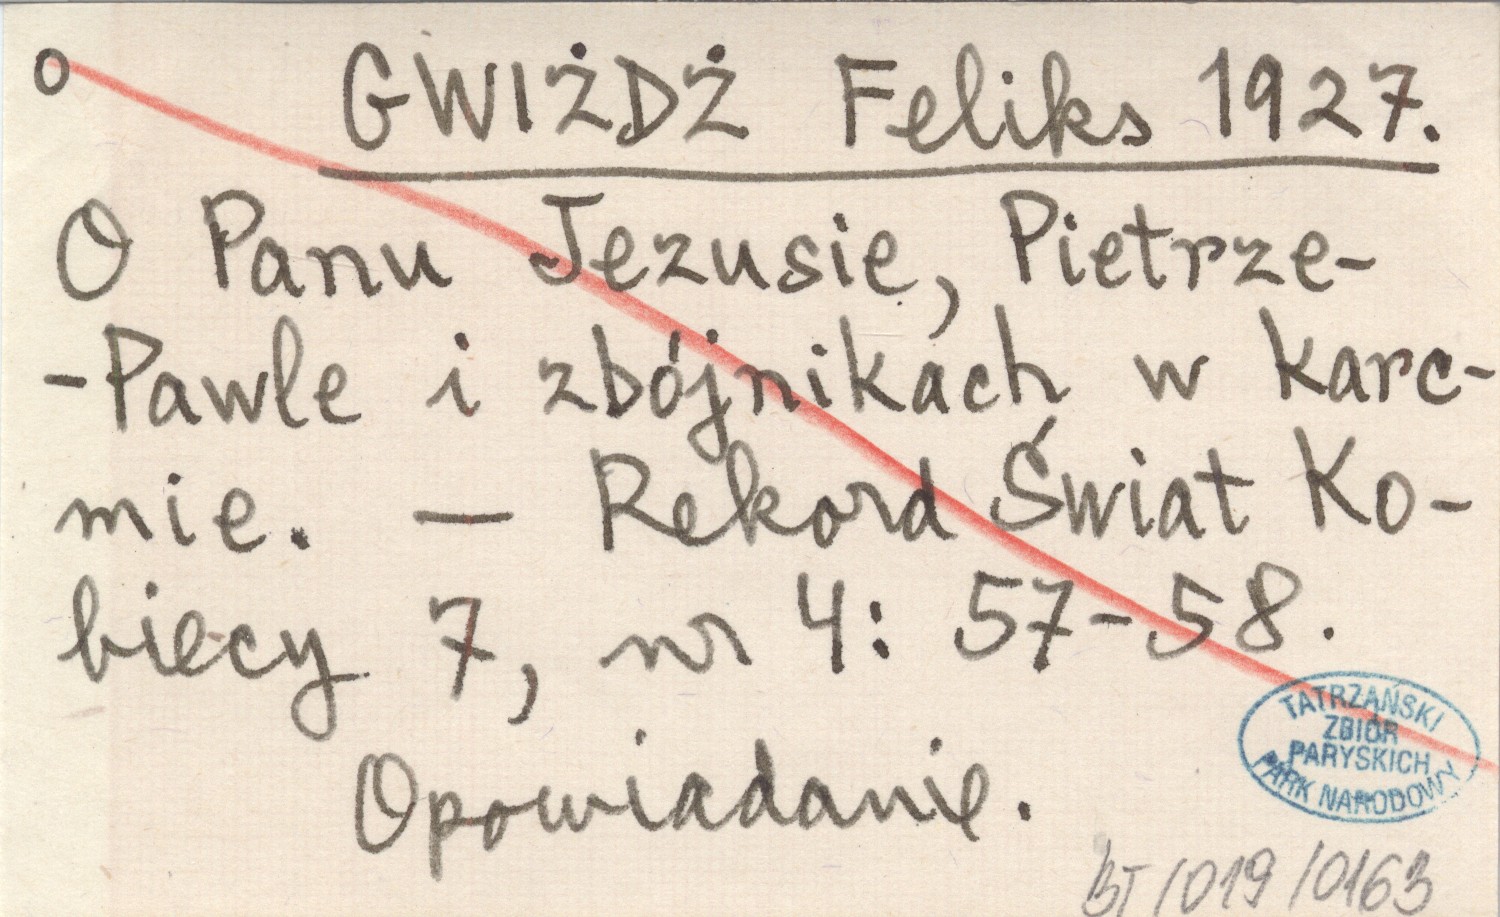 o GWIŻDŻ Feliks 1927.
O Panu Jezusie, Pietrze-
-Pawle i zbójnikach w karc-
mie. — Rekord Świat Ko-
biecy 7, nr 4: 57-58.
Opowiadanie.
TATRZAŃSKI
ZBIÓR
PARYSKICH
PARK NARODOWY
BT/019/0163